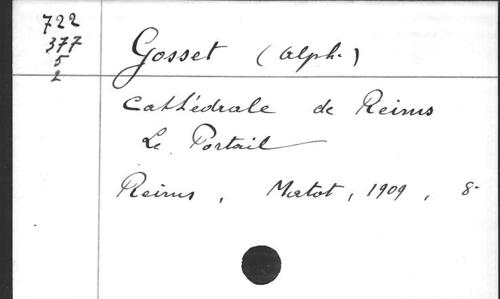 722
377
5
2
Gosset (Alph.)
Cathédrale de Reims
Le Portail
Reims, Matot, 1909, 8-